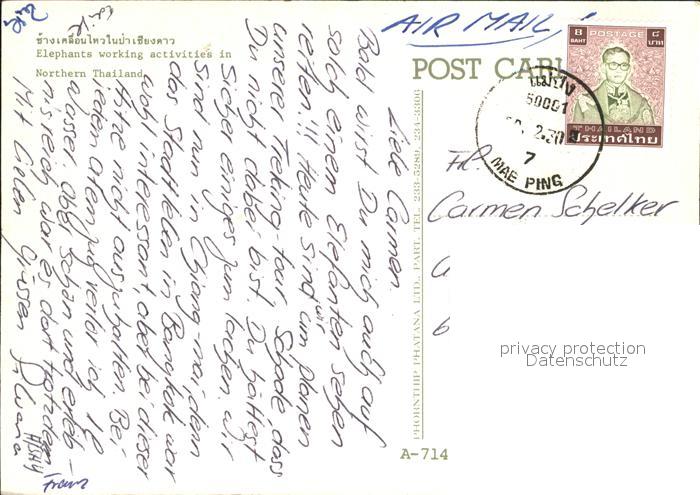 ช้างเคลื่อนไหวในป่าเชียงดาว
Elephants working activities in
Northern Thailand
AIR MAIL
POST CARD
8
BAHT
POSTAGE
๘
บาท
THAILAND
ประเทศไทย
แม่ปิง
50001
7
MAE PING
Liebe Carmen.
Bald wirst Du mich auch auf
solch einem Elefanten sehen
reiten!!! Heute sind wir am planen
unserer Teking-tour. Schade, dass
Du nicht dabei bist. Du hättest
sicher einiges zum lachen. Wir
sind nun in Chiang-mai, denn
das Stadtleben in Bangkok war
wohl interessant, aber bei dieser
Hitze nicht auszuhalten. Bei
jedem Atemzug verlor ich 1 l
Wasser, aber schön und erleb-
nisreich war es dort trotzdem
Mit lieben Grüssen
Franz
Frl.
Carmen Schelker
privacy protection
Datenschutz
PHORNTHIP PHATANA LTD., PART. TEL. 233-5289, 234-3306
A-714